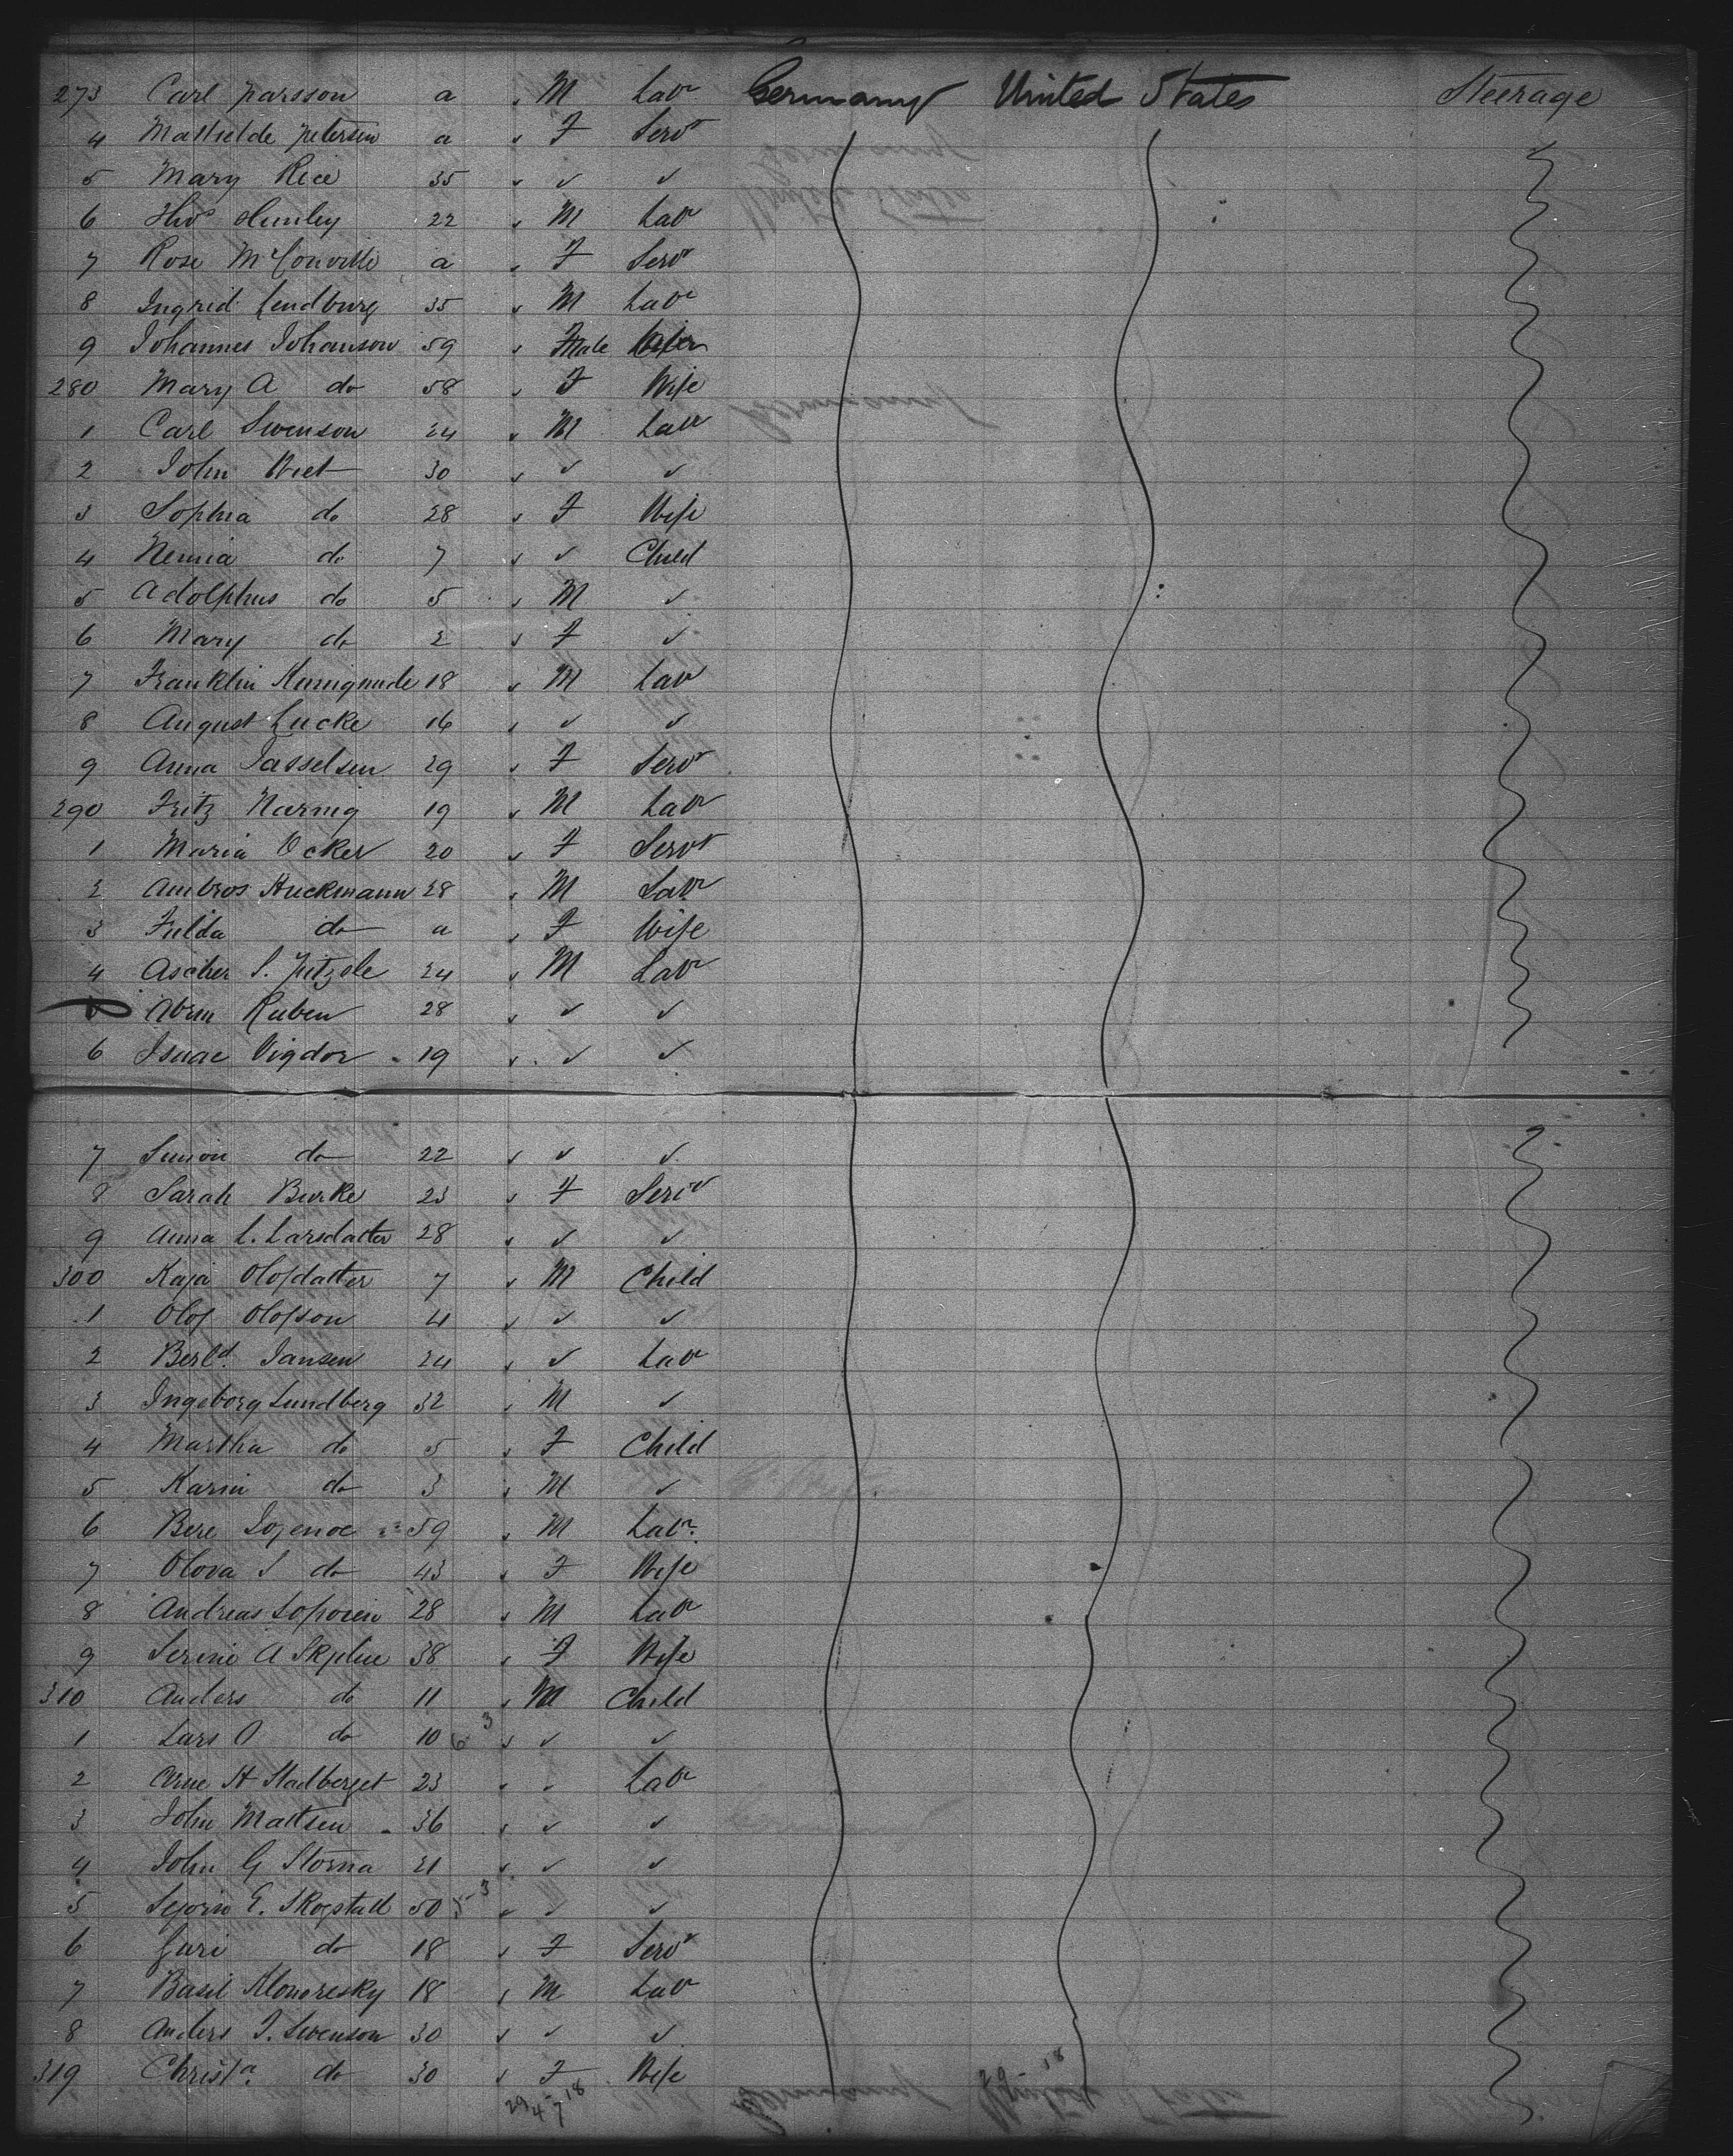 273 Carl Parsson a ✓ M Labr Germany United States Steerage
4 Mathilde Petersen a ✓ F Servt
5 Mary Rice 35 ✓ ✓ ✓
6 Thos Hunley 22 ✓ M Labr
7 Rose McConville a ✓ F Servt
8 Ingrid Lendburg 35 ✓ M Labr
9 Johannes Johanson 59 ✓ Male
280 Mary A do 58 ✓ F Wife
1 Carl Swenson 24 ✓ M Labr
2 John 30 ✓ ✓ ✓
3 Sophia do 28 ✓ F Wife
4 do 7 ✓ ✓ Child
5 Adolphus do 5 ✓ M ✓
6 Mary do 2 ✓ F ✓
7 Franklin 18 ✓ M Labr
8 August Lucke 16 ✓ ✓ ✓
9 Anna Jasselsen 29 ✓ F Servt
290 Fritz 19 ✓ M Labr
1 Maria Ocker 20 ✓ F Servt
2 Ambros Huckmann 28 ✓ M Labr
3 Fulda do a ✓ F Wife
4 Ascher S. 24 ✓ M Labr
Abm Ruben 28 ✓ ✓ ✓
6 Isaac Vigdor 19 ✓ ✓ ✓
7 Simon do 22 ✓ ✓ ✓
8 Sarah Burke 23 ✓ F Servt
9 Anna L. Larsdatter 28 ✓ ✓ ✓
300 Kaja Olofdatter 7 ✓ M Child
1 Olof Olofson 4 ✓ ✓ ✓
2 Berld. Jansen 24 ✓ ✓ Labr
3 Ingeborg Lundberg 32 ✓ M ✓
4 Martha do 5 ✓ F Child
5 Karin do 3 ✓ M ✓
6 Bere 59 ✓ M Labr.
7 Olova S do 43 ✓ F Wife
8 Andreas 28 ✓ M Labr
9 A 38 ✓ F Wife
310 Anders do 11 ✓ M Child
1 Lars O do 10 6 3 ✓ ✓ ✓
2 Arne H Stadberget 23 ✓ ✓ Labr
3 John Mattsen 36 ✓ ✓ ✓
4 John G Storna 21 ✓ ✓ ✓
5 E. Skogstad 50 5 3 ✓ ✓ ✓
6 Guri do 18 ✓ F Servt
7 Basil 18 ✓ M Labr
8 Anders J. Swenson 30 ✓ ✓ ✓
319 Christa. do 30 ✓ F Wife
29 4 - 7 18
29 - 18